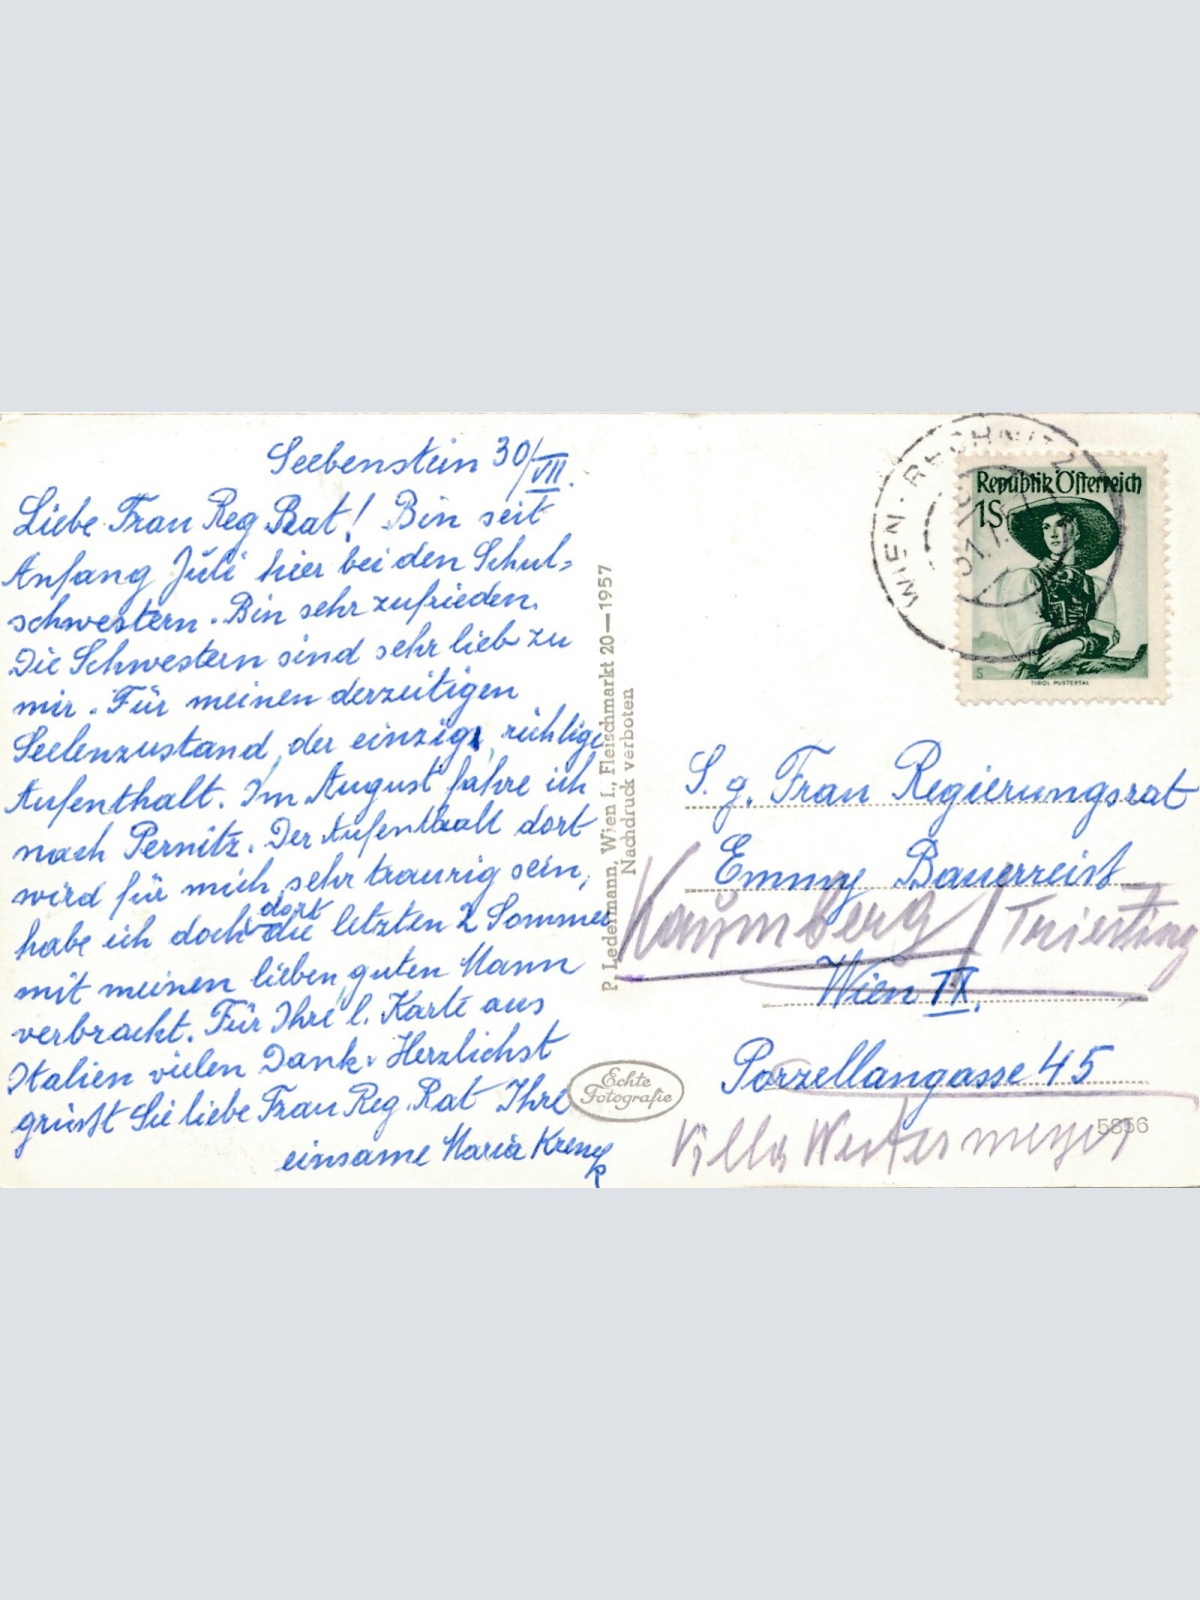 Seebenstein 30/VII.
Liebe Frau Reg Rat! Bin seit
Anfang Juli hier bei den Schul-
schwestern. Bin sehr zufrieden.
Die Schwestern sind sehr lieb zu
mir. Für meinen derzeitigen
Seelenzustand, der einzig, richtige
Aufenthalt. Im August fahre ich
nach Pernitz. Der Aufenthalt dort
wird für mich sehr traurig sein,
habe ich doch dort die letzten 2 Sommer
mit meinen lieben, guten Mann
verbracht. Für Ihre l. Karte aus
Italien vielen Dank. Herzlichst
grüsst Sie liebe Frau Reg. Rat Ihre
einsame Maria
P. Ledermann, Wien I., Fleischmarkt 20—1957
Nachdruck verboten
Echte
Fotografie
WIEN-RECHNITZ
Republik Österreich
1S
S
TIROL PUSTERTAL
S. g. Frau Regierungsrat
Emmy
Kaumberg / Triesting
Wien IX.
Porzellangasse 45
5856
Villa Westermeyer